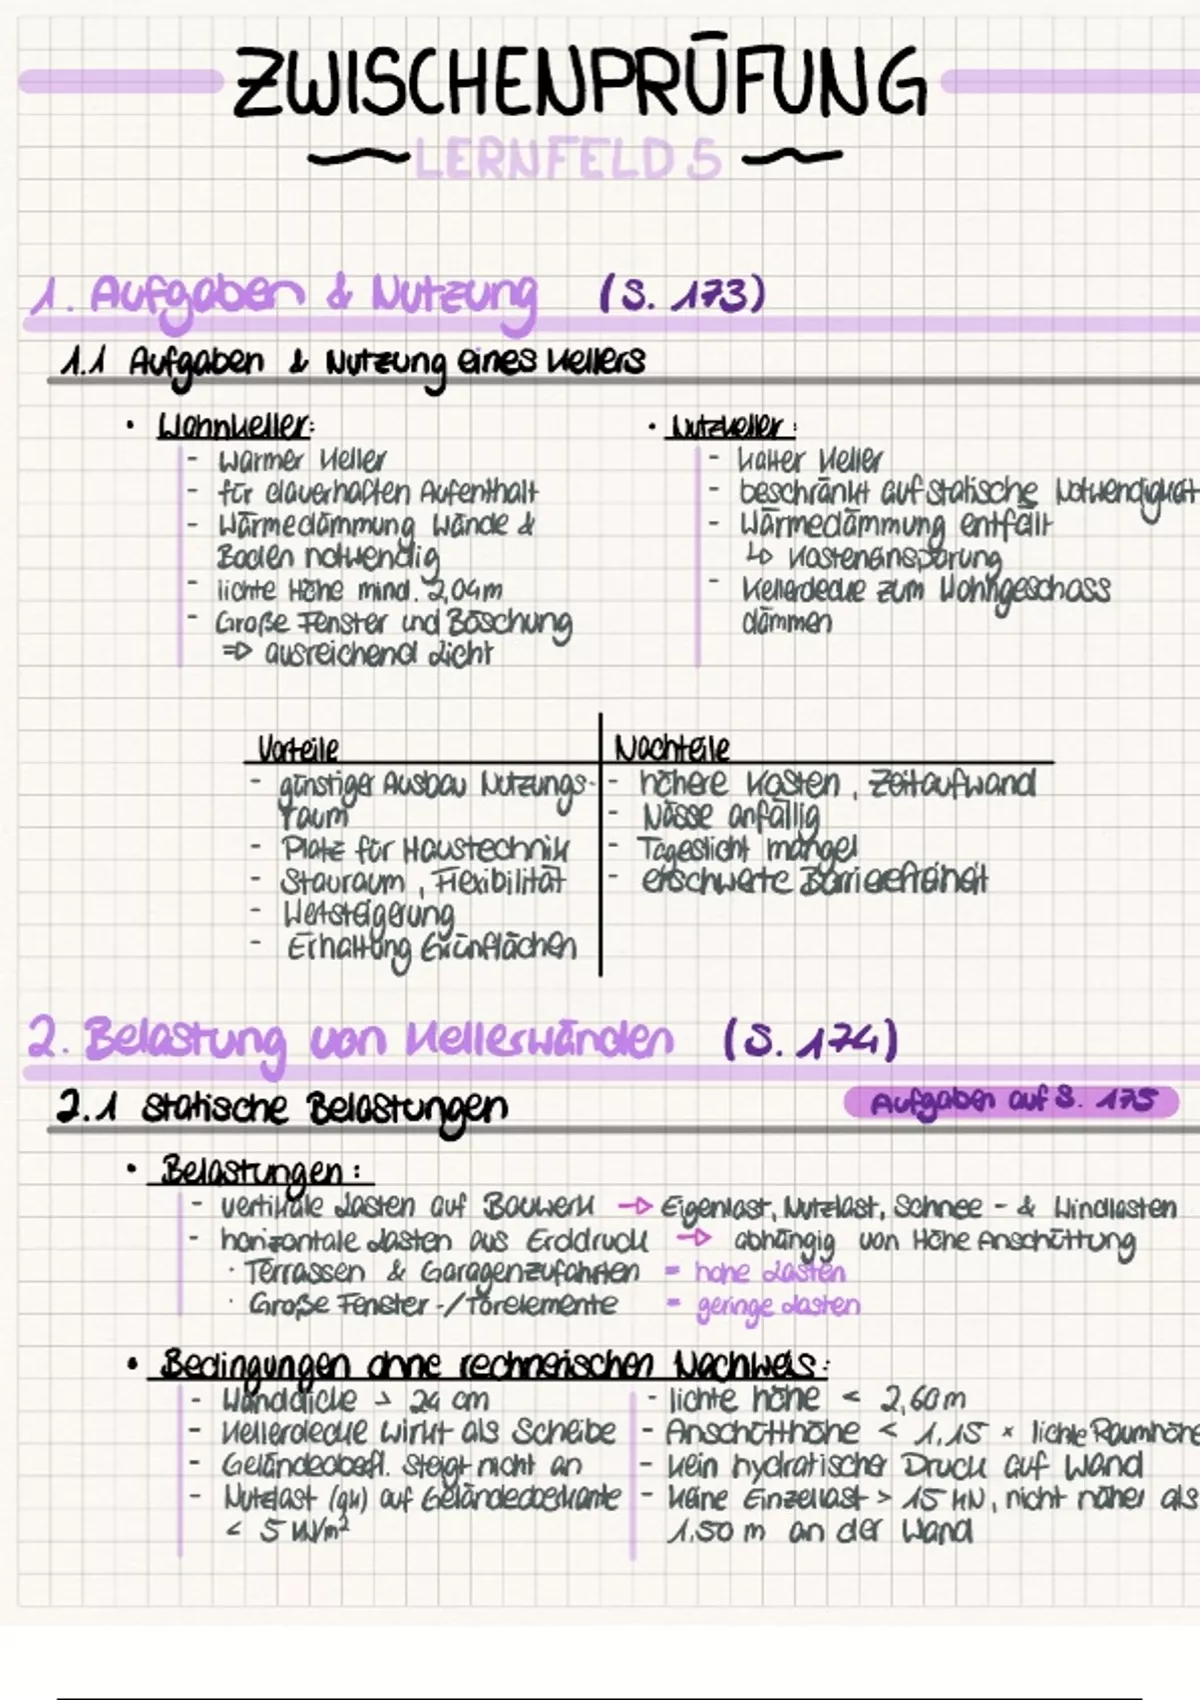 ZWISCHENPRÜFUNG
LERNFELD 5
1. Aufgaben & Nutzung (S. 173)
1.1 Aufgaben & Nutzung eines Kellers
• Wohnkeller:
- warmer Keller
- für dauerhaften Aufenthalt
- Wärmedämmung Wände &
Boden notwendig
- lichte Höhe mind. 2,04m
- Große Fenster und Böschung
=> ausreichend Licht
• Nutzkeller:
- kalter Keller
- beschränkt auf statische Notwendigkeit
- Wärmedämmung entfällt
↳ Kosteneinsparung
- Kellerdecke zum Wohngeschoss
dämmen
Vorteile
- günstiger Ausbau Nutzungs-
raum
- Platz für Haustechnik
- Stauraum, Flexibilität
- Wetsteigerung
- Erhaltung Grünflächen
Nachteile
- höhere Kosten, Zeitaufwand
- Nässe anfällig
- Tageslicht mangel
- erschwerte Barrierefreiheit
2. Belastung von Kellerwänden (S. 174)
2.1 statische Belastungen Aufgaben auf S. 175
• Belastungen:
- vertikale Lasten auf Bauwerk → Eigenlast, Nutzlast, Schnee - & Windlasten
- horizontale Lasten aus Erddruck → abhängig von Höhe Anschüttung
· Terrassen & Garagenzufahrten = hohe Lasten
· Große Fenster -/Torelemente = geringe Lasten
• Bedingungen ohne rechnerischen Nachweis:
- Wanddicke > 24 cm
- Kellerdecke wirkt als Scheibe
- Geländeobefl. steigt nicht an
- Nutzlast (qk) auf Geländeoberkante
< 5 kN/m²
- lichte höhe < 2,60m
- Anschütthöhe < 1,15 × lichte Raumhöhe
- kein hydratischer Druck auf Wand
- Keine Einzellast > 15 kN, nicht näher als
1,50 m an der Wand